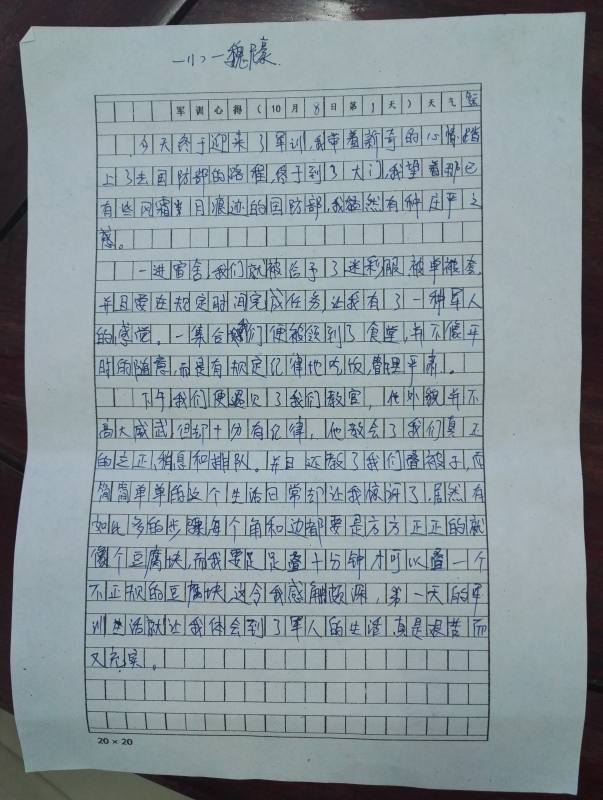 一(2)一魏
军训心得（10月8日第1天）天气
今天终于迎来了军训，我带着新奇的心情踏
上了去国防部的路程，终于到了大门，我望着那已
有些风霜岁月痕迹的国防部，我猛然有种庄严之
感。
一进宿舍，我们就被给予了迷彩服，被单被套，
并且要在规定时间完成任务，让我有了一种军人
的感觉。一集合我们便被领到了食堂，并不像平
时的随意，而是有规定纪律地吃饭，管理严肃。
下午我们便遇见了我们教官，他外貌并不
高大威武，但却十分有纪律，他教会了我们真正
的立正，稍息和排队。并且还教了我们叠被子，
简简单单的这个生活日常却让我惊讶了，居然有
如此多的步骤每个角和边都要是方方正正的就
像个豆腐块，而我要足足叠十分钟才可以叠一个
不正规的豆腐块，这令我感触颇深，第一天的军
训生活就让我体会到了军人的生活真是艰苦而
又充实。
20×20